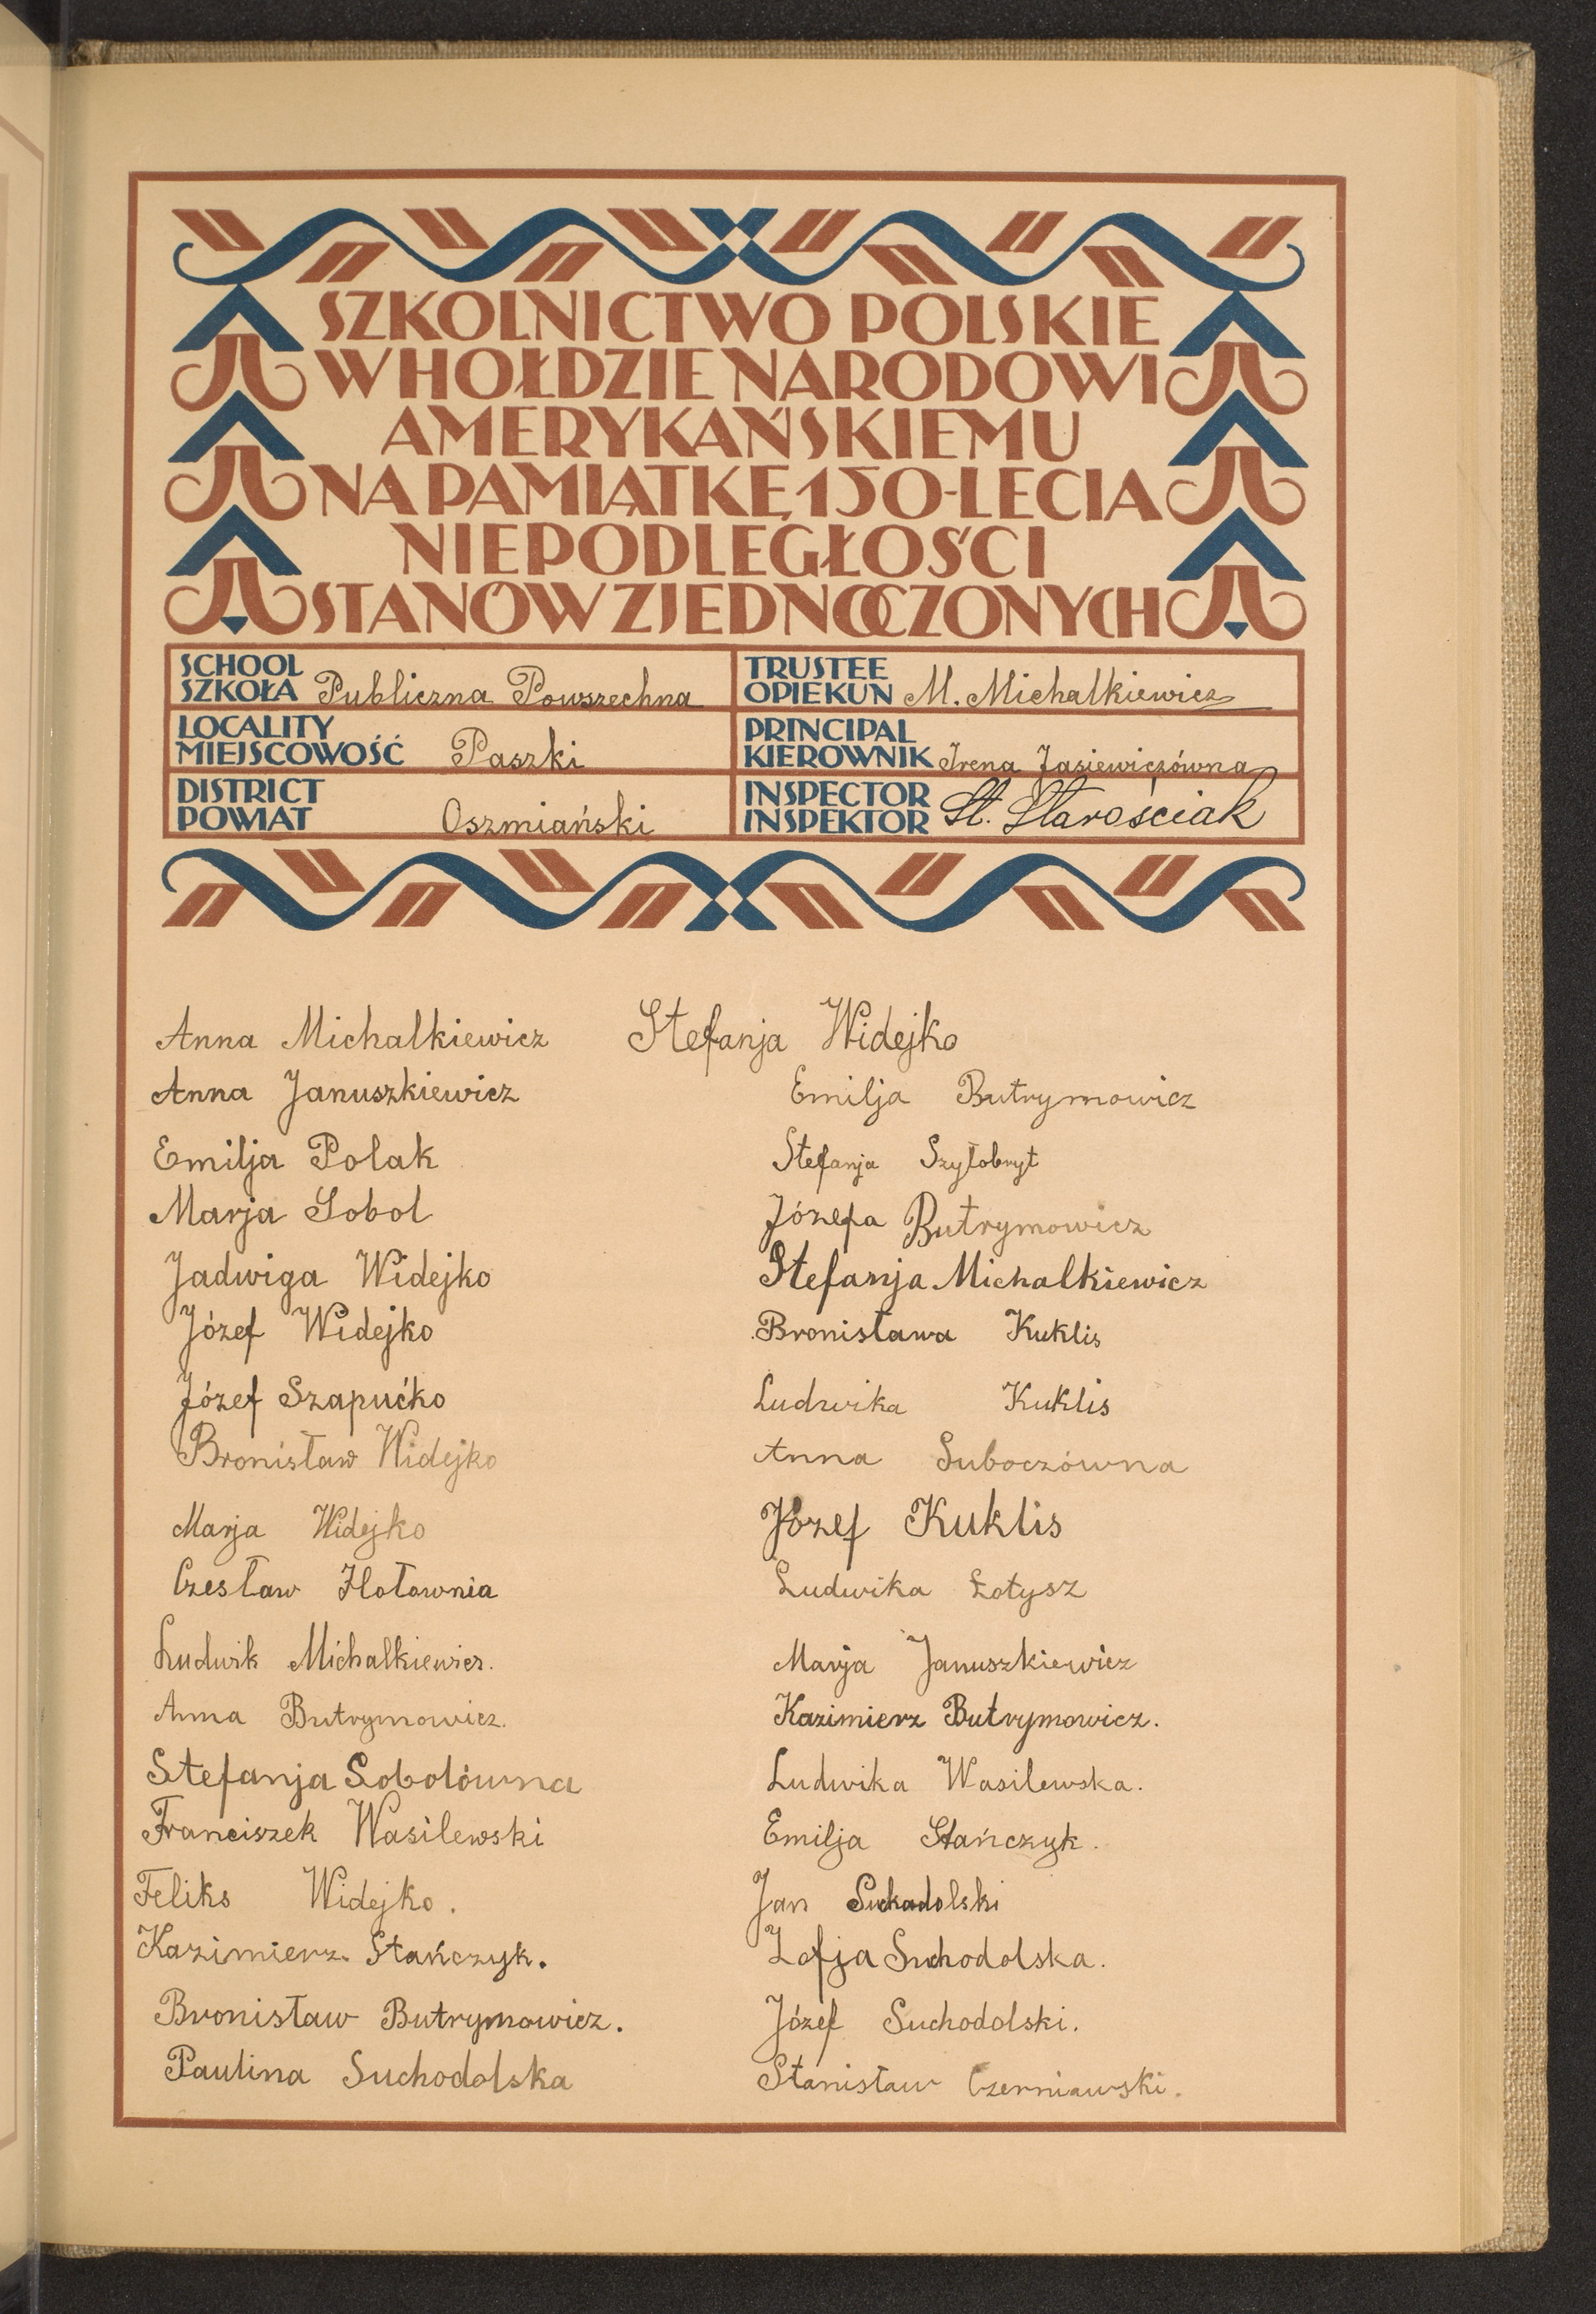 SZKOLNICTWO POLSKIE
W HOŁDZIE NARODOWI
AMERYKAŃSKIEMU
NA PAMIĄTKĘ 150-LECIA
NIEPODLEGŁOŚCI
STANÓW ZJEDNOCZONYCH
SCHOOL
SZKOŁA Publiczna Powszechna
TRUSTEE
OPIEKUN M. Michalkiewicz
LOCALITY
MIEJSCOWOŚĆ Paszki
PRINCIPAL
KIEROWNIK Irena Jasiewiczówna
DISTRICT
POWIAT Oszmiański
INSPECTOR
INSPEKTOR St. Starościak
Anna Michalkiewicz
Anna Januszkiewicz
Emilja Polak
Marja Sobol
Jadwiga Widejko
Józef Widejko
Józef Szapućko
Bronisław Widejko
Marja Widejko
Czesław Hołownia
Ludwik Michalkiewicz.
Anna Butrymowicz.
Stefanja Sobolówna
Franciszek Wasilewski
Feliks Widejko.
Kazimierz Stańczyk.
Bronisław Butrymowicz.
Paulina Suchodolska
Stefanja Widejko
Emilja Butrymowicz
Stefanja Szyłobryt
Józefa Butrymowicz
Stefanja Michalkiewicz
Bronisława Kuklis
Ludwika Kuklis
Anna Suboczówna
Józef Kuklis
Ludwika Łotysz
Marja Januszkiewicz
Kazimierz Butrymowicz.
Ludwika Wasilewska.
Emilja Stańczyk.
Jan Suchadolski
Zofja Suchodolska.
Józef Suchodolski.
Stanisław Czerniawski.